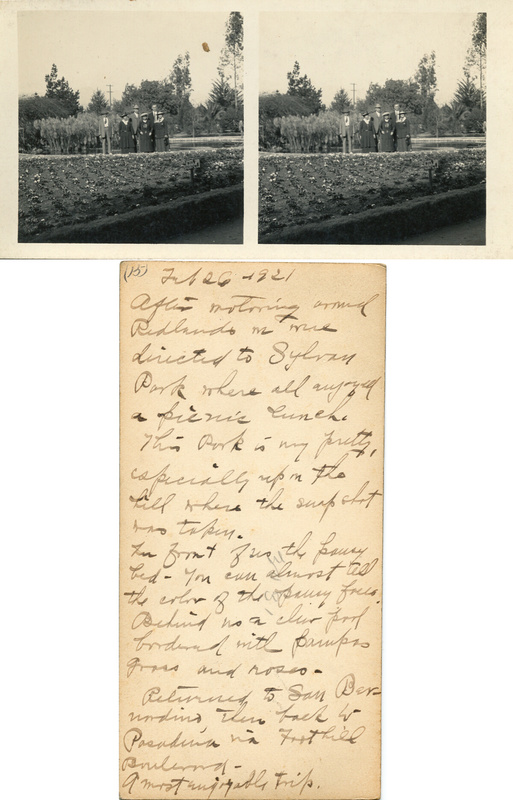 (15) Feb 26 - 1921
After motoring around
Redlands we were
directed to Sylvan
Park where all enjoyed
a picnic lunch.
This Park is very pretty,
especially up on the
hill where the snapshot
was taken.
In front of us the pansy
bed - You can almost tell
the color of the pansy faces.
Behind us a clear pool
bordered with pampas
grass and roses -
Returned to San Ber-
nardino then back to
Pasadena via Foothill
Boulevard -
A most enjoyable trip.